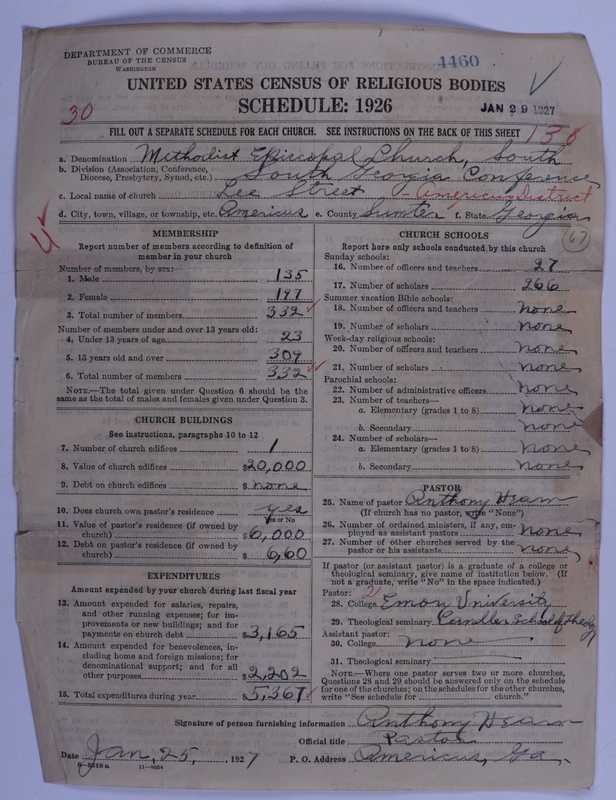 DEPARTMENT OF COMMERCE
BUREAU OF THE CENSUS
WASHINGTON
4460
UNITED STATES CENSUS OF RELIGIOUS BODIES
SCHEDULE: 1926
JAN 29 1927
30
FILL OUT A SEPARATE SCHEDULE FOR EACH CHURCH. SEE INSTRUCTIONS ON THE BACK OF THIS SHEET
a. Denomination Methodist Episcopal Church, South
b. Division (Association, Conference, Diocese, Presbytery, Synod, etc.) South Georgia Conference
c. Local name of church Lee Street - Americus District
d. City, town, village, or township, etc. Americus e. County Sumter f. State Georgia
67
MEMBERSHIP
Report number of members according to definition of
member in your church
Number of members, by sex:—
1. Male 135
2. Female 197
3. Total number of members 332
Number of members under and over 13 years old:
4. Under 13 years of age 23
5. 13 years old and over 309
6. Total number of members 332
NOTE.—The total given under Question 6 should be
the same as the total of males and females given under Question 3.
CHURCH BUILDINGS
See instructions, paragraphs 10 to 12
7. Number of church edifices 1
8. Value of church edifices $20,000
9. Debt on church edifices $none
10. Does church own pastor's residence? yes
Yes or No
11. Value of pastor's residence (if owned by
church) $6,000
12. Debt on pastor's residence (if owned by
church) $660
EXPENDITURES
Amount expended by your church during last fiscal year
13. Amount expended for salaries, repairs,
and other running expenses; for im-
provements or new buildings; and for
payments on church debt $3,165
14. Amount expended for benevolences, in-
cluding home and foreign missions; for
denominational support; and for all
other purposes $2,202
15. Total expenditures during year $5,367
CHURCH SCHOOLS
Report here only schools conducted by this church
Sunday schools:
16. Number of officers and teachers 27
17. Number of scholars 266
Summer vacation Bible schools:
18. Number of officers and teachers none
19. Number of scholars none
Week-day religious schools:
20. Number of officers and teachers none
21. Number of scholars none
Parochial schools:
22. Number of administrative officers none
23. Number of teachers—
a. Elementary (grades 1 to 8) none
b. Secondary none
24. Number of scholars—
a. Elementary (grades 1 to 8) none
b. Secondary none
PASTOR
25. Name of pastor Anthony Hearn
(If church has no pastor, write "None")
26. Number of ordained ministers, if any, em-
ployed as assistant pastors none
27. Number of other churches served by the
pastor or his assistants none
If pastor (or assistant pastor) is a graduate of a college or
theological seminary, give name of institution below. (If
not a graduate, write "No" in the space indicated.)
Pastor:
28. College Emory University
29. Theological seminary Candler School of Theology
Assistant pastor:
30. College none
31. Theological seminary
NOTE.—Where one pastor serves two or more churches,
Questions 28 and 29 should be answered only on the schedule
for one of the churches; on the schedules for the other churches,
write "See schedule for church."
Signature of person furnishing information Anthony Hearn
Official title Pastor
Date Jan, 25, 1927 P. O. Address Americus, Ga.